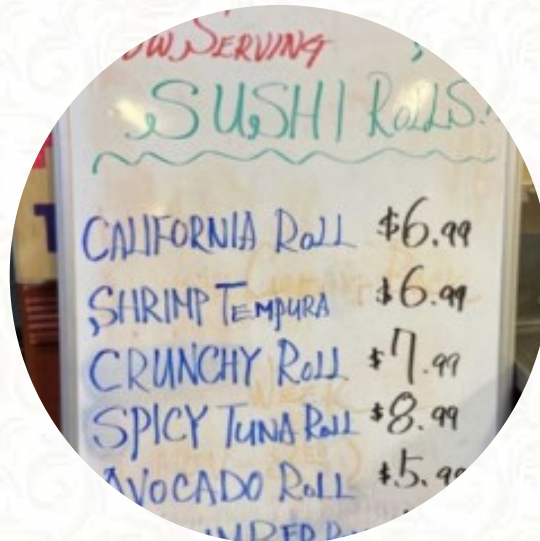 SERVING
SUSHI ROLLS!
CALIFORNIA ROLL $6.99
SHRIMP TEMPURA $6.99
CRUNCHY ROLL $7.99
SPICY TUNA ROLL $8.99
AVOCADO ROLL $5.99